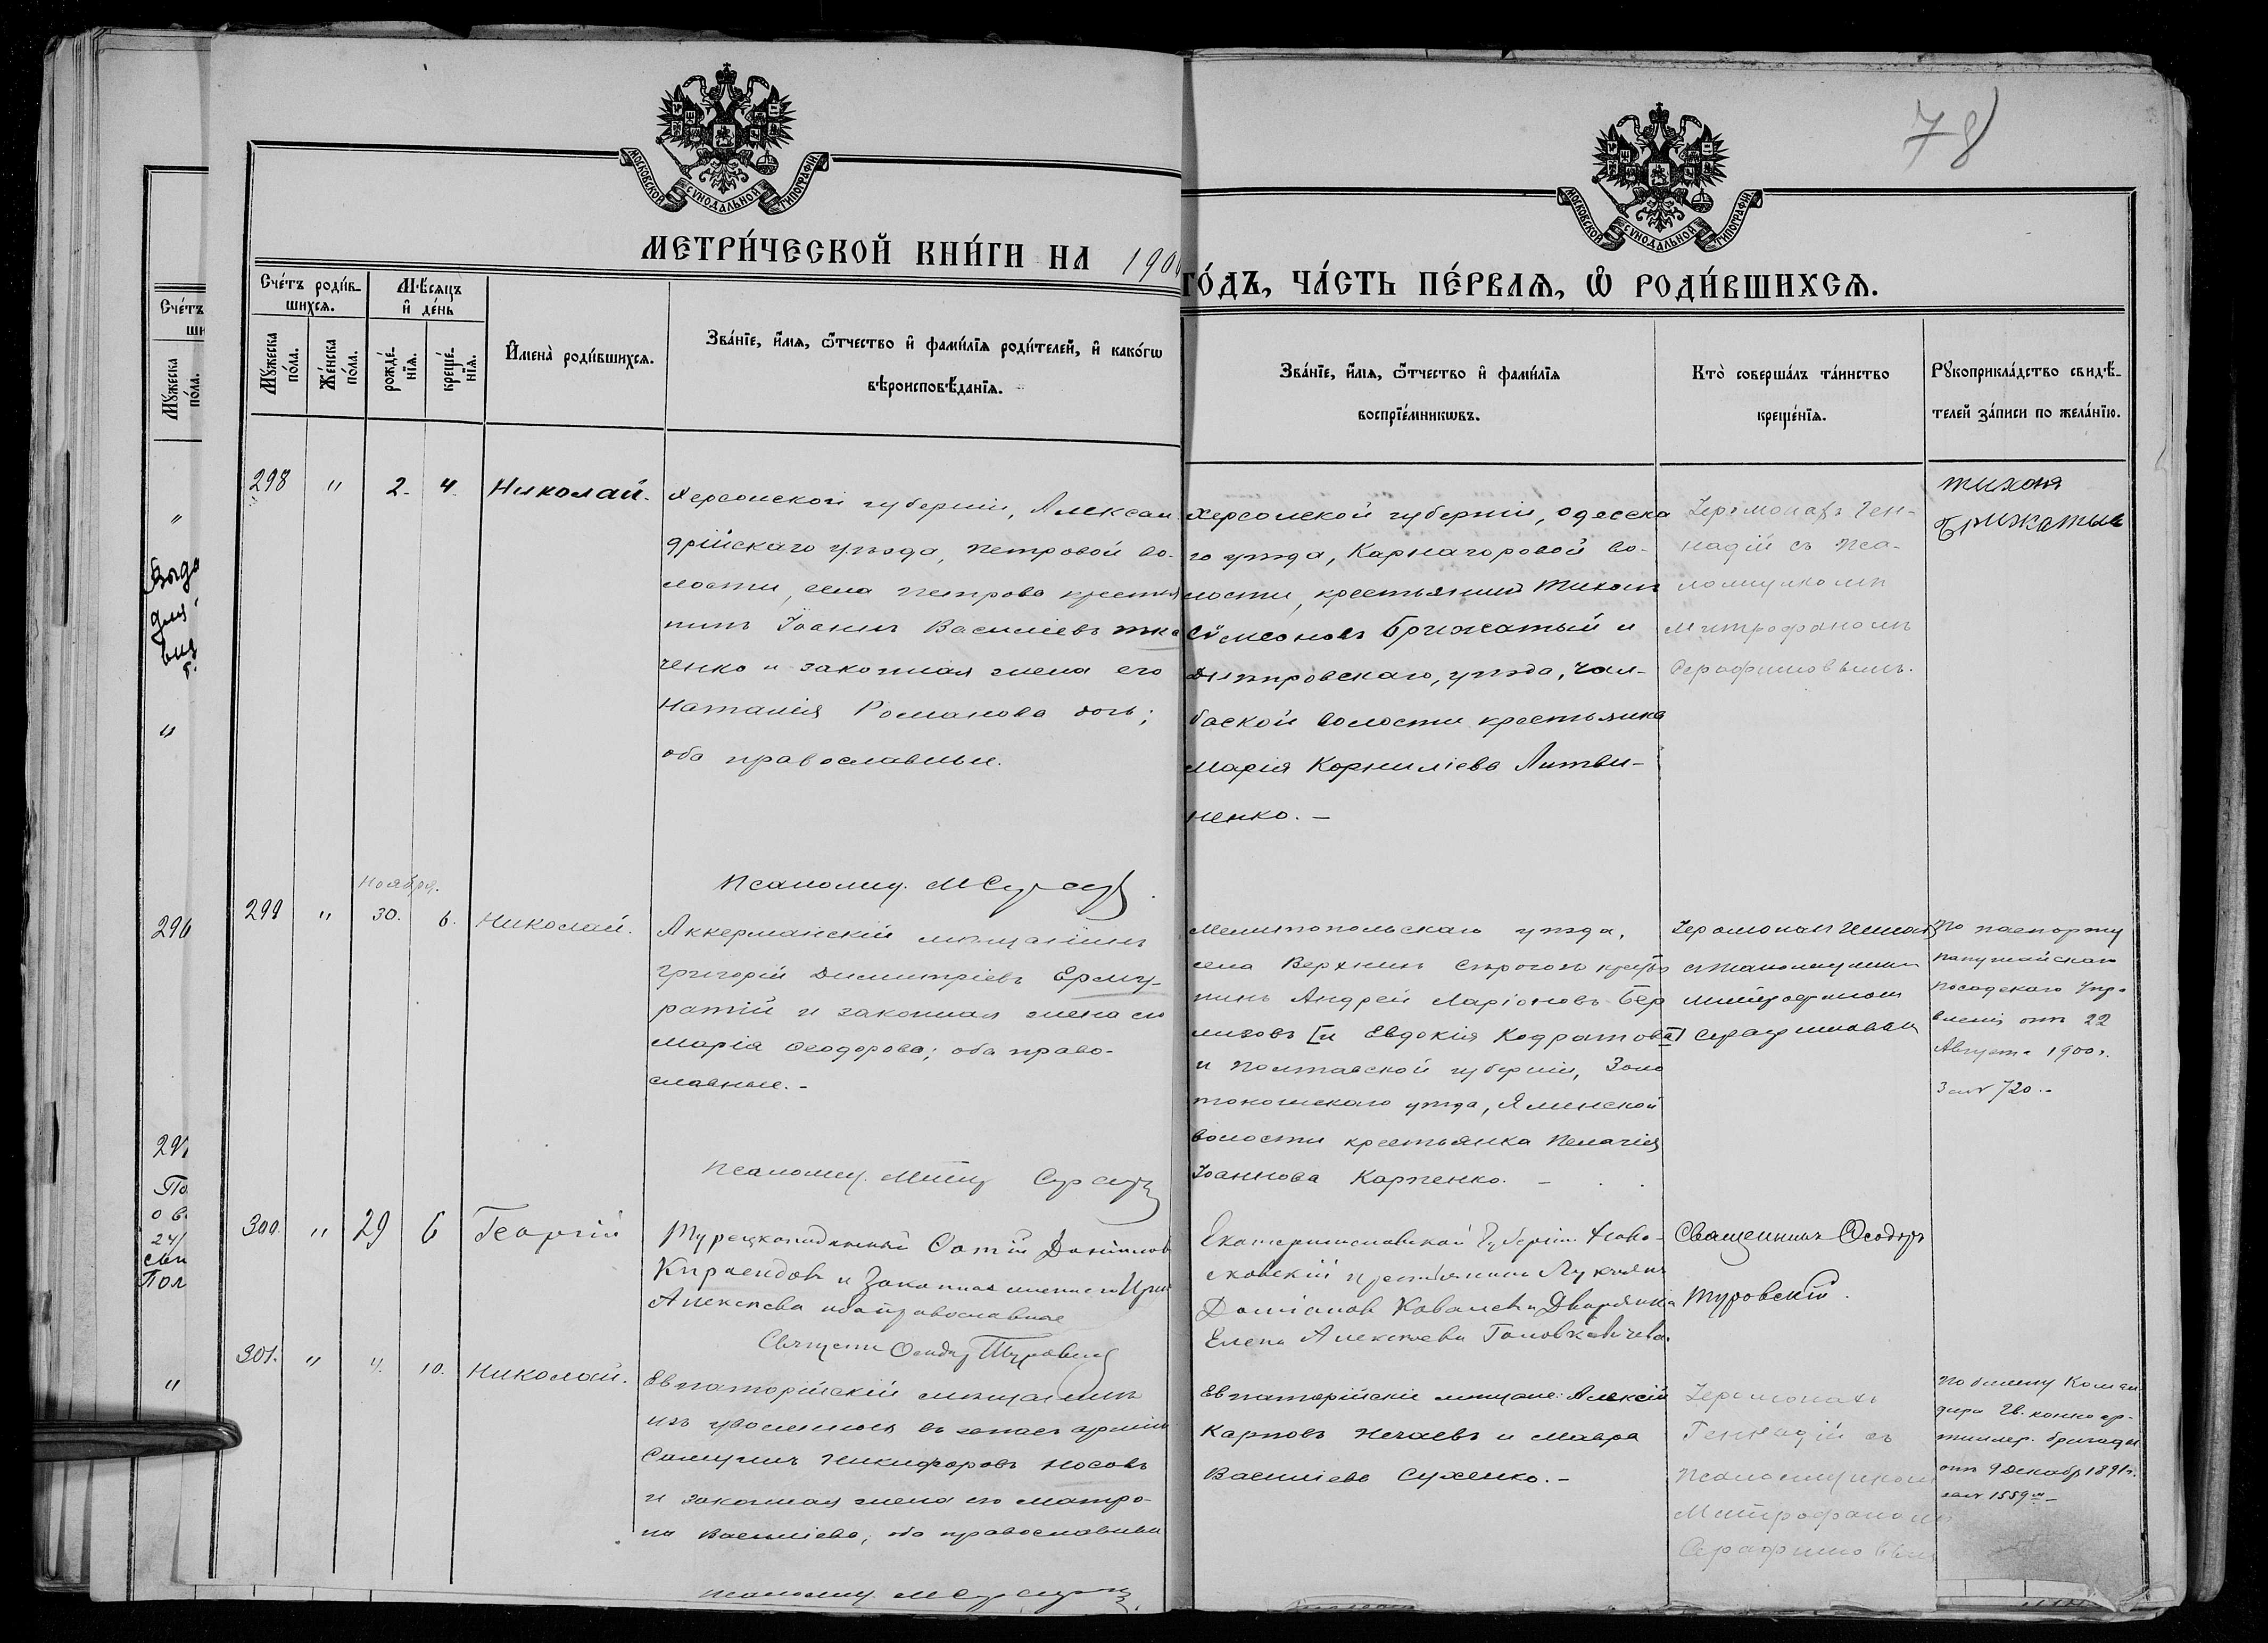 78
МОСКОВСКОЙ СУНОДАЛЬНОЙ ТИПОГРАФІИ
МОСКОВСКОЙ СУНОДАЛЬНОЙ ТИПОГРАФІИ
МЕТРИ́ЧЕСКОЙ КНИ́ГИ НА 1900
ГО́ДЪ, ЧА́СТЬ ПЕ́РВАѦ, Ѽ РОДИ́ВШИХСѦ.
Сче́тъ роди́в-
шихсѧ.
Мꙋ́жеска по́ла.
Же́нска по́ла.
Мѣ́сяцъ
и҆ де́нь
рожде́-
нїѧ.
креще́-
нїѧ.
И҆мена̀ роди́вшихсѧ.
Зва́нїе, и҆́мѧ, ѻ҆́тчество и҆ фами́лїѧ роди́телей, и҆ како́гѡ
вѣроисповѣ́данїѧ.
Зва́нїе, и҆́мѧ, ѻ҆́тчество и҆ фами́лїѧ
воспрїе́мникѡвъ.
Кто̀ соверша́лъ та́инство
креще́нїѧ.
Рꙋкоприкла́дство свидѣ́-
телей за́писи по жела́нїю.
298 " 2. 4. Николай.
Херсонской губерніи, Алексан
дрійскаго уѣзда, Петровой во-
лости, села Петрова крестья
нинъ Іоаннъ Василіевъ Тка
ченко и законная жена его
Наталія Романова дочь;
оба православные.
Псаломщ.
Херсонской губерніи, Одесска
го уѣзда, Карнагоровой во-
лости, крестьянинъ Тихонъ
Сѵмеоновъ Брижатый и
Днѣпровскаго, уѣзда, Чал-
баской волости крестьянка
Марія Корниліева Литви-
ненко. –
Іеромонахъ Ген-
надій съ Пса-
ломщикомъ
Митрофаномъ
Серафимовымъ.
Тихон
Брижатый
Ноября.
299 " 30. 6. Николай.
Аккерманскій мѣщанинъ
Григорій Димитріевъ Ерму-
ратій и законная жена его
Марія Ѳеодорова; оба право-
славные. –
Псаломщ.
Мелитопольскаго уѣзда,
села Верхнихъ Сѣрогозъ кресть
нинъ Андрей Ларіоновъ Бер
лизовъ [и Евдокія Кодратова]
и Полтавской губерніи, Золо
тоношскаго уѣзда, Ялинской
волости крестьянка Пелагія
Іоаннова Карпенко. –
По паспорту
Папушойскаго
Посадскаго Упра
вленія отъ 22
Августа 1900 г.
за № 720. –
300 " 29 6 Георгій
Турецкоподданный Фотій Даніилов
и законная жена его Ири
Алексѣева оба православные
Священн Ѳеодор Туровскій
Екатеринославской Губерніи Ново-
московскій крестьянинъ Лукіянъ
Даміановъ Ковалевъ и Дворянка
Елена Алексѣева Головкевичева.
Священникъ Ѳеодоръ
Туровскій.
301. " 4. 10. Николай.
Евпаторійскій мѣщанинъ
изъ уволенныхъ въ запасъ арміи
Самуилъ Никифоровъ Носовъ
и законная жена его Матро-
на Василіева, оба православные
Псаломщ.
Евпаторійскіе мѣщане: Алексій
Карповъ Нечаевъ и Мавра
Василіева Сухенко. –
Іеромонахъ
Геннадій съ
Псаломщикомъ
Митрофаномъ
Серафимовымъ
По билету Коман
дира Гв. конно ар-
тиллер. бригады
отъ 9 Декабр 1891 г.
за № 1559 –
Сче́тъ
Мꙋ́жеска
по́ла.
296
297